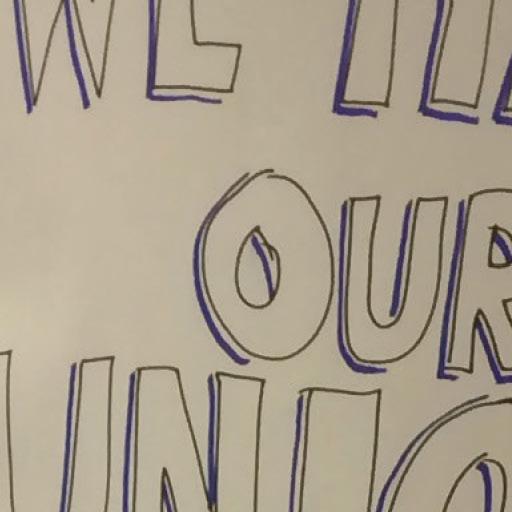 WE
OUR
UNIO